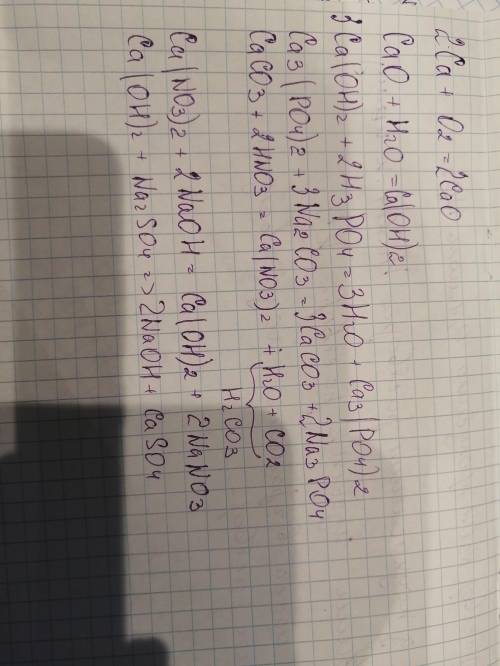 2Ca + O2 = 2CaO
CaO + H2O = Ca(OH)2
3Ca(OH)2 + 2H3PO4 = 3H2O + Ca3(PO4)2
Ca3(PO4)2 + 3Na2CO3 = 3CaCO3 + 2Na3PO4
CaCO3 + 2HNO3 = Ca(NO3)2 + H2O + CO2
H2CO3
Ca(NO3)2 + 2NaOH = Ca(OH)2 + 2NaNO3
Ca(OH)2 + Na2SO4 => 2NaOH + CaSO4